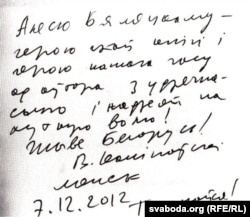 Алесю Бяляцкому –
герою маёй кнігі і
герою нашага часу
ад аўтара з удзячна-
сьцю і надзеяй на
хуткую волю!
Жыве Беларусь!
В. Каліноўскі
Менск
7.12.2012
svaboda.org (RFE/RL)